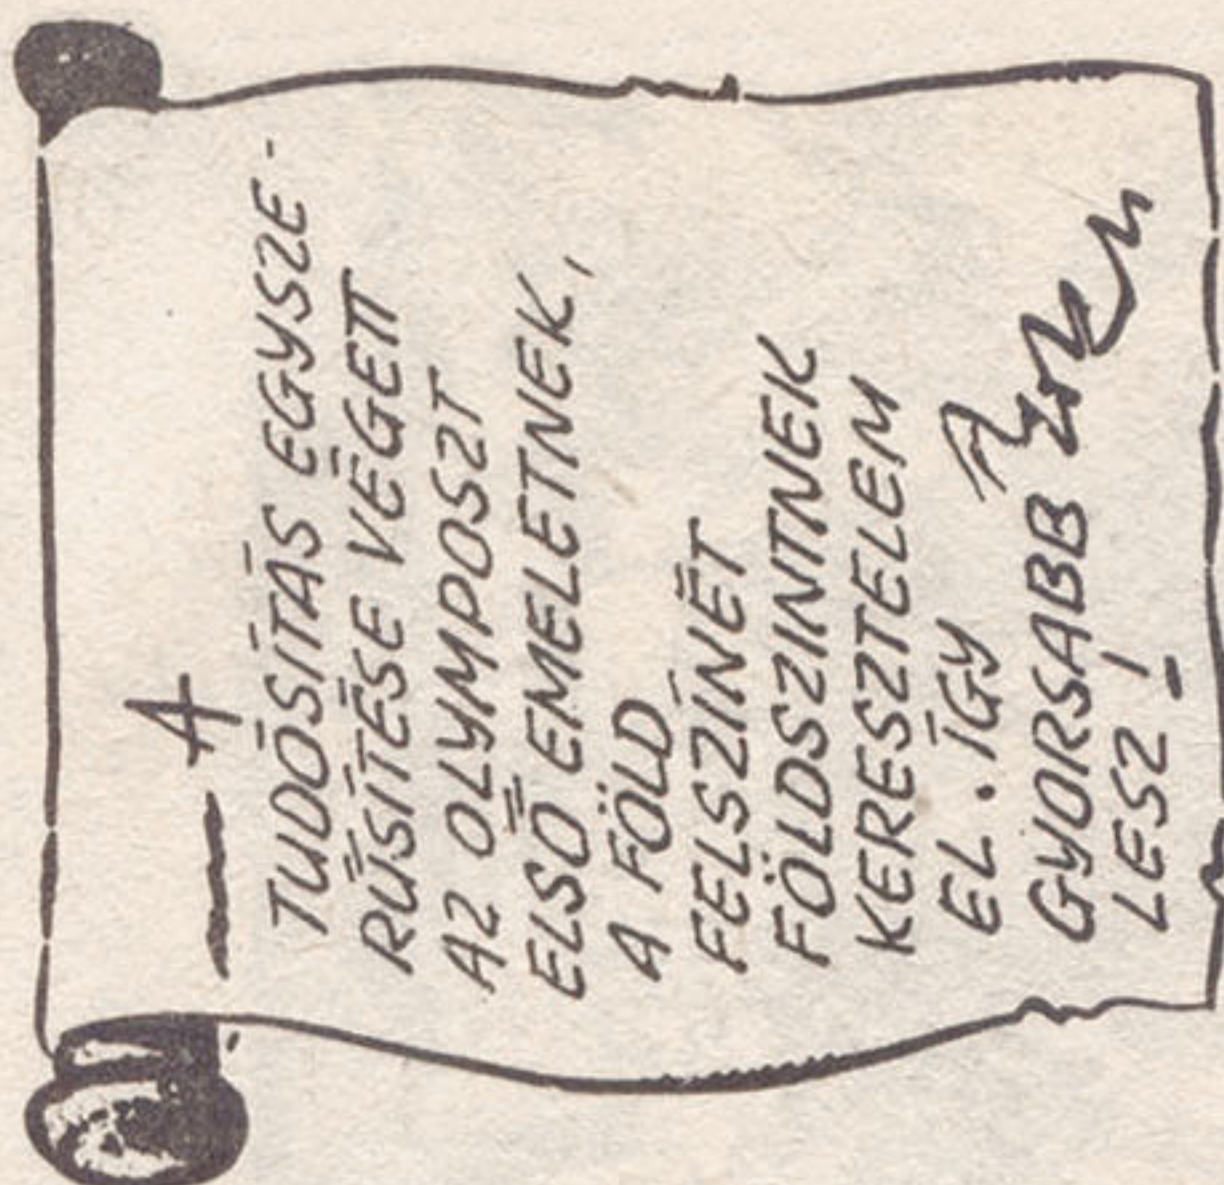 — A
TUDÓSÍTÁS EGYSZE-
RŰSÍTÉSE VÉGETT
AZ OLYMPOSZT
ELSŐ EMELETNEK,
A FÖLD
FELSZÍNÉT
FÖLDSZINTNEK
KERESZTELEM
EL. ÍGY
GYORSABB
LESZ!